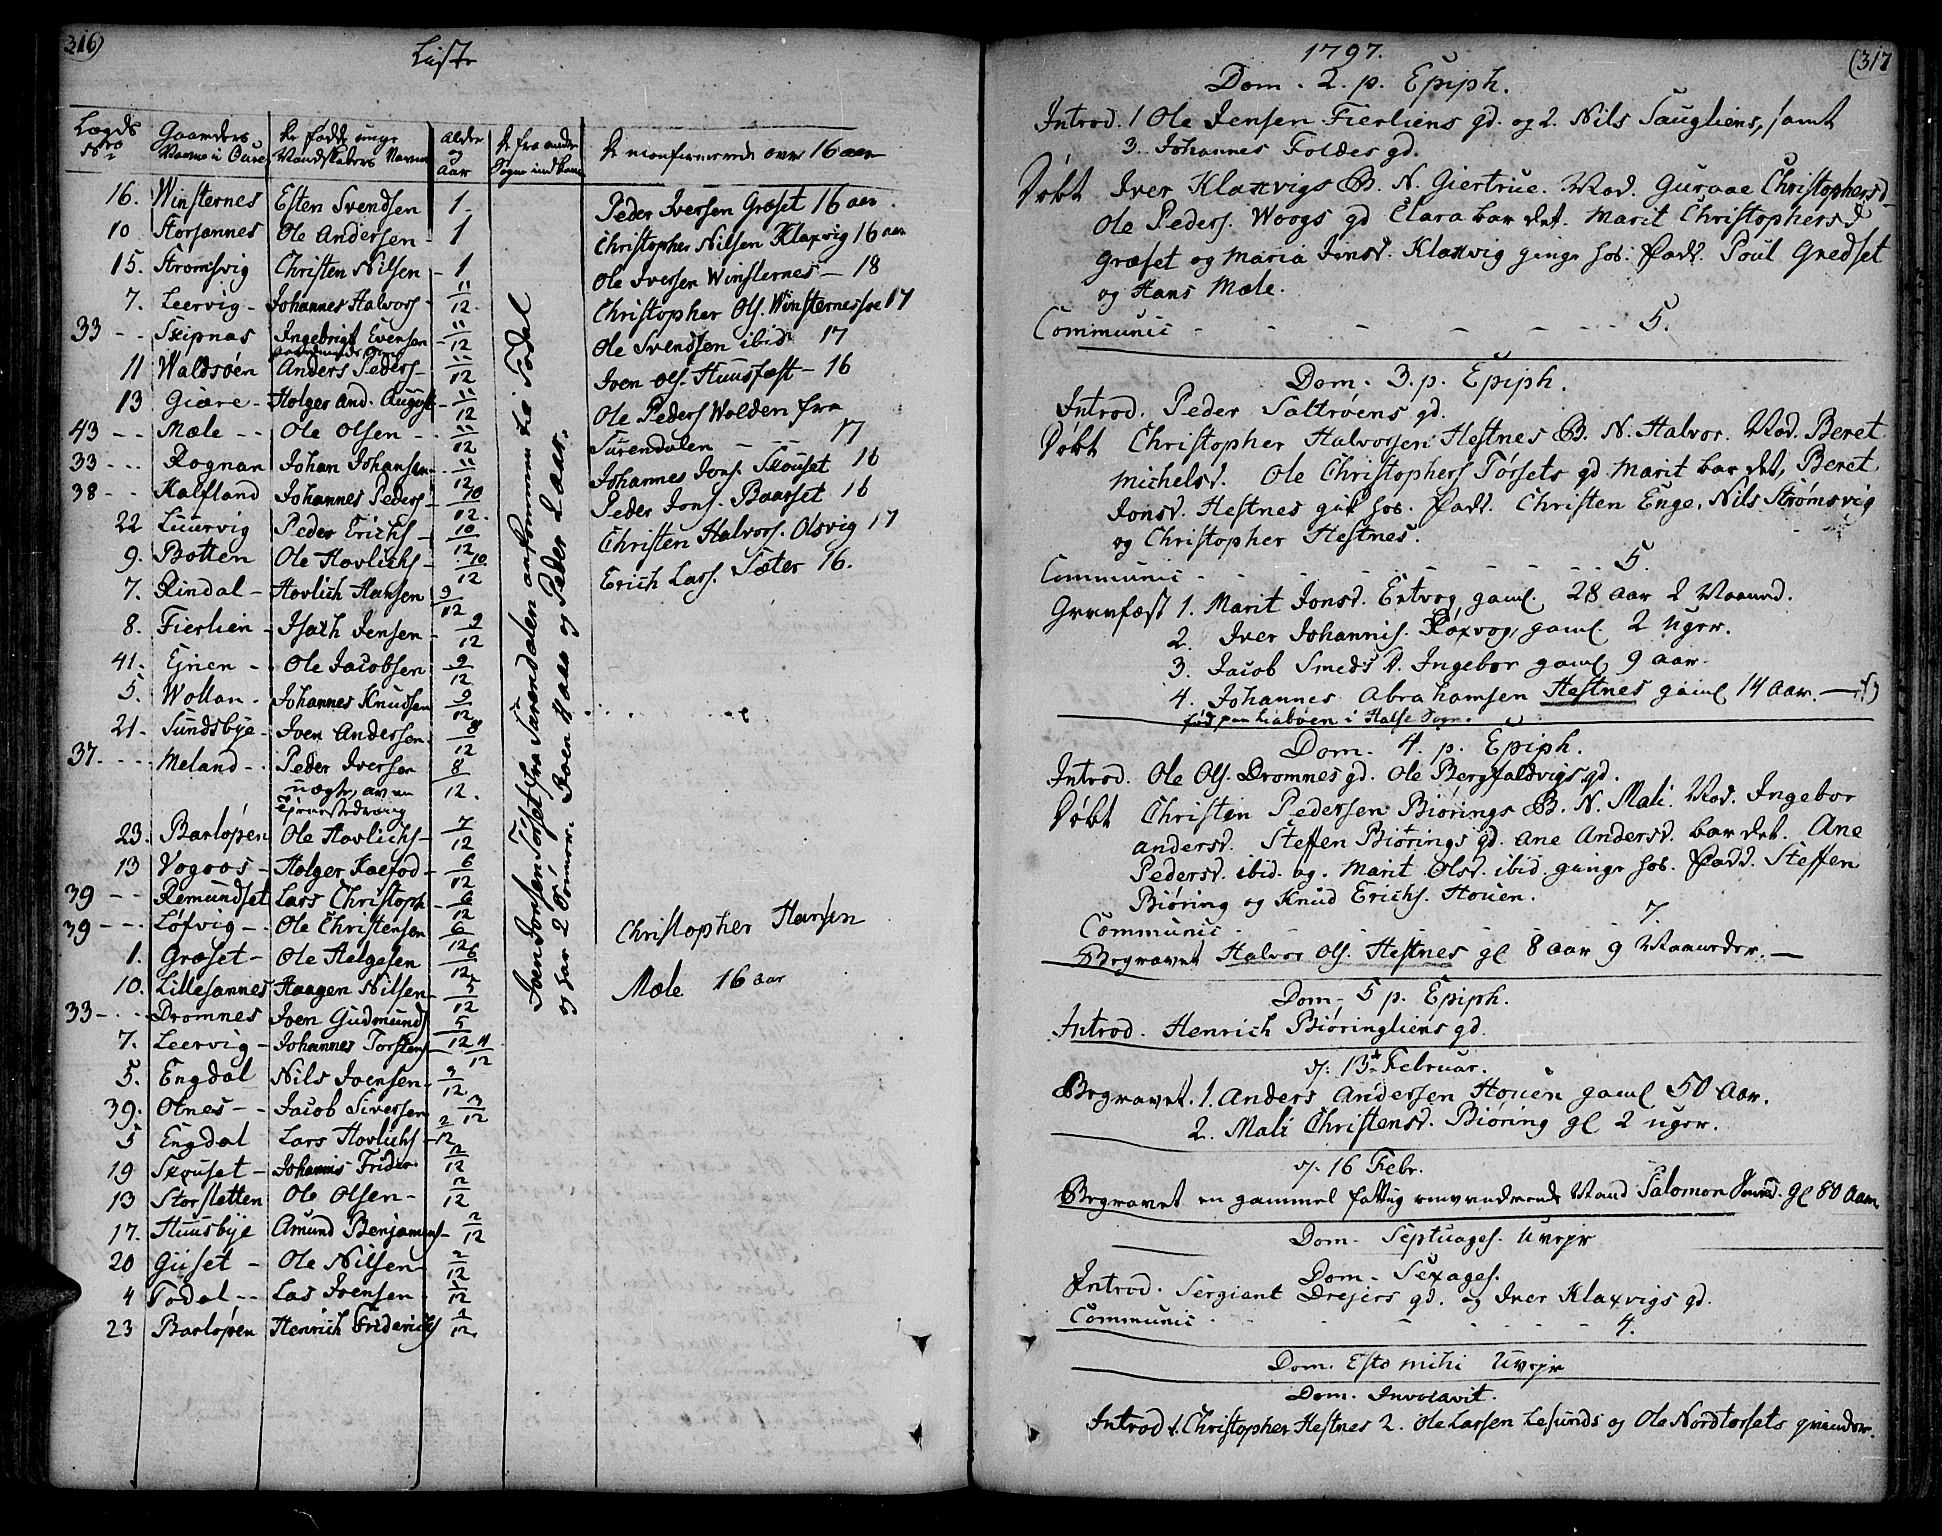 316)
Liste
Lægds
Nro
Gaardens
Navne i Aure
De fødde unge
Mandskabers Navne
Alder
og
Aar
De fra andre
Sogne indkomne
De uconfirmerede over 16 aar
16. Winsternes Esten Svendsen 1.
10 Storsannes Ole Andersen - 1
15. Strømsvig Christen Nilsen - 1
7. Leervig - Johannes Halvors - 11/12.
33 - - Skipnas Ingebrigt Evensen - 11/12
11 Waldsøen Anders Peders - 11/12
13 Giære - Holger And. August - 11/12
43 - - Mæle - - Ole Olsen - - 11/12
33 - - - Rognan Johan Johansen - 11/12
38 - - Kalfland Johannes Peders - 10/12.
22 Luurvig Peder Erichs - 10/12
9. Botten Ole Hovlichs - 10/12
7. Rindal - Hovlich Hansen 9/12
8. Fierlien - Isach Jensen - 9/12
41. Ejnen - - Ole Jacobsen 9/12
5. Wollan - Johannes Knudsen 9/12
21. Sundsbye - Joen Andersen 8/12
37 - - - Meland - - Peder Iversen 8/12.
23. Barlopen Ole Hovlichs - 7/12
13 Vogoos - Holger Kaefod - 6/12
39 - - Remundset Lars Christoph - 6/12
39 - - - Løfvig - - Ole Christensen 6/12
1. Græset - Ole Helgesen 6/12
10. Lillesannes Haagen Nilsen - 5/12
33 - - - Dromnes Joen Gudmunds 5/12
7. Leervig - Johannes Torstens 4/12
5. Engdal Nils Joensen - 3/12
39. Otnes - - Jacob Siversen 3/12
5 Engdal Lars Hovlichs - 2/12
19 Skouset - Johannis Frider. 2/12
13 Storsletten Ole Olsen - 2/12
17. Huusbye Amund Benjamins - 2/12
20 Giiset - Ole Nilsen - 2/12
4 Todal - - Las Joensen - 1/12
23 Barlopen Henrich Friderichs 1/12
Joen Jonsen Torset fra Surendalen ankommen til Todal
og har 2 Sønner. Joen 4 aar og Peder 2 aar.
Peder Iversen Græset 16 aar.
Christopher Nilsen Klaxvig 16 aar
Ole Iversen Winsternes - 18
Christopher Ols. Winsternessøe 17
Ole Svendsen ibid. 17
Joen Ols. Huusfæst - 16
Ole Peders Wolden fra
Surendalen - - 17
Johannes Jons. Skouset 16
Peder Jons. Baarset 16
Christen Halvors. Olsvig 17
Erich Lars. Sæter 16.
Christopher Hansen
Mæle 16 aar
(317
1797.
Dom. 2. p. Epiph.
Introd. 1 Ole Jensen Fierliens gd. og 2. Nils Saugliens, samt
3. Johannes Foldes gd.
Døbt Iver Klaxvigs B. N. Giertrue. Mod. Guraae Christophersd
Ole Peders. Woogs gd Clara bar det. Marit Christophersd
Græset og Maria Jonsd. Klaxvig ginge hos. Fadd. Poul Gredset
og Hans Mæle.
Communic - - - - - 5.
Dom. 3. p. Epiph.
Introd. Peder Saltrøens gd.
Døbt Christopher Halvorsen Hestnes B. N. Halvor. Mod. Beret
Michelsd. Ole Christophers Torsets gd Marit bar det, Beret
Jonsd. Hestnes gik hos. Fadd. Christen Enge, Nils Strømsvig
og Christopher Hestnes.
Communic - - - - - 5.
Gravfæst 1. Marit Jonsd. Ertvog gaml. 28 aar 2 Maaned.
2. Iver Johannis. Roxvog, gaml. 2 uger.
3. Jacob Smeds d. Ingebor gaml 9 aar.
4. Johannes Abrahamsen Hestnes gaml 14 Aar. -
fød paa Liabøen i Halse Sogn.
Dom. 4. p. Epiph.
Introd. Ole Ols. Dromnes gd. Ole Bergfaldvigs gd.
Døbt Christen Pedersen Biørings B. N. Mali. Mod. Ingebor
Andersd. Steffen Biørings gd. Ane Andersd. bar det. Ane
Pedersd. ibid. og Marit Olsd. ibid. ginge hos. Fadd. Steffen
Biøring og Knud Erichs. Houen.
Communic - 7.
Begravet Halvor Ols. Hestnes gl 8 aar 9 Maaneder. -
Dom. 5 p. Epiph.
Introd. Henrich Biøringliens gd.
d. 13 Februar.
Begravet. 1. Anders Andersen Houen gaml 50 Aar.
2. Mali Christensd. Biøring gl 2 uger.
d. 16 Febr.
Begravet en gammel fattig omvandrende Mand Salomon gl 80 Aar
Dom. Septuages. Uvejr
Dom. Sexages.
Introd. Sergiant Drejers gd. og Iver Klaxvigs gd.
Communic - - - - - 4.
Dom. Esto mihi Uvejr
Dom. Invocavit.
Introd 1. Christopher Hestnes 2. Ole Larsen Lesunds og Ole Nordtorsets qvinder.